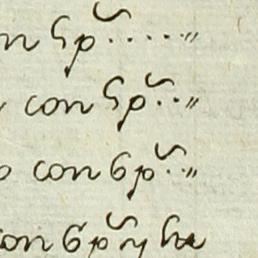 n 5 p^s.....,,
con 5 p^s..,,
o con 6 p^s..,,
con 6 p^s y